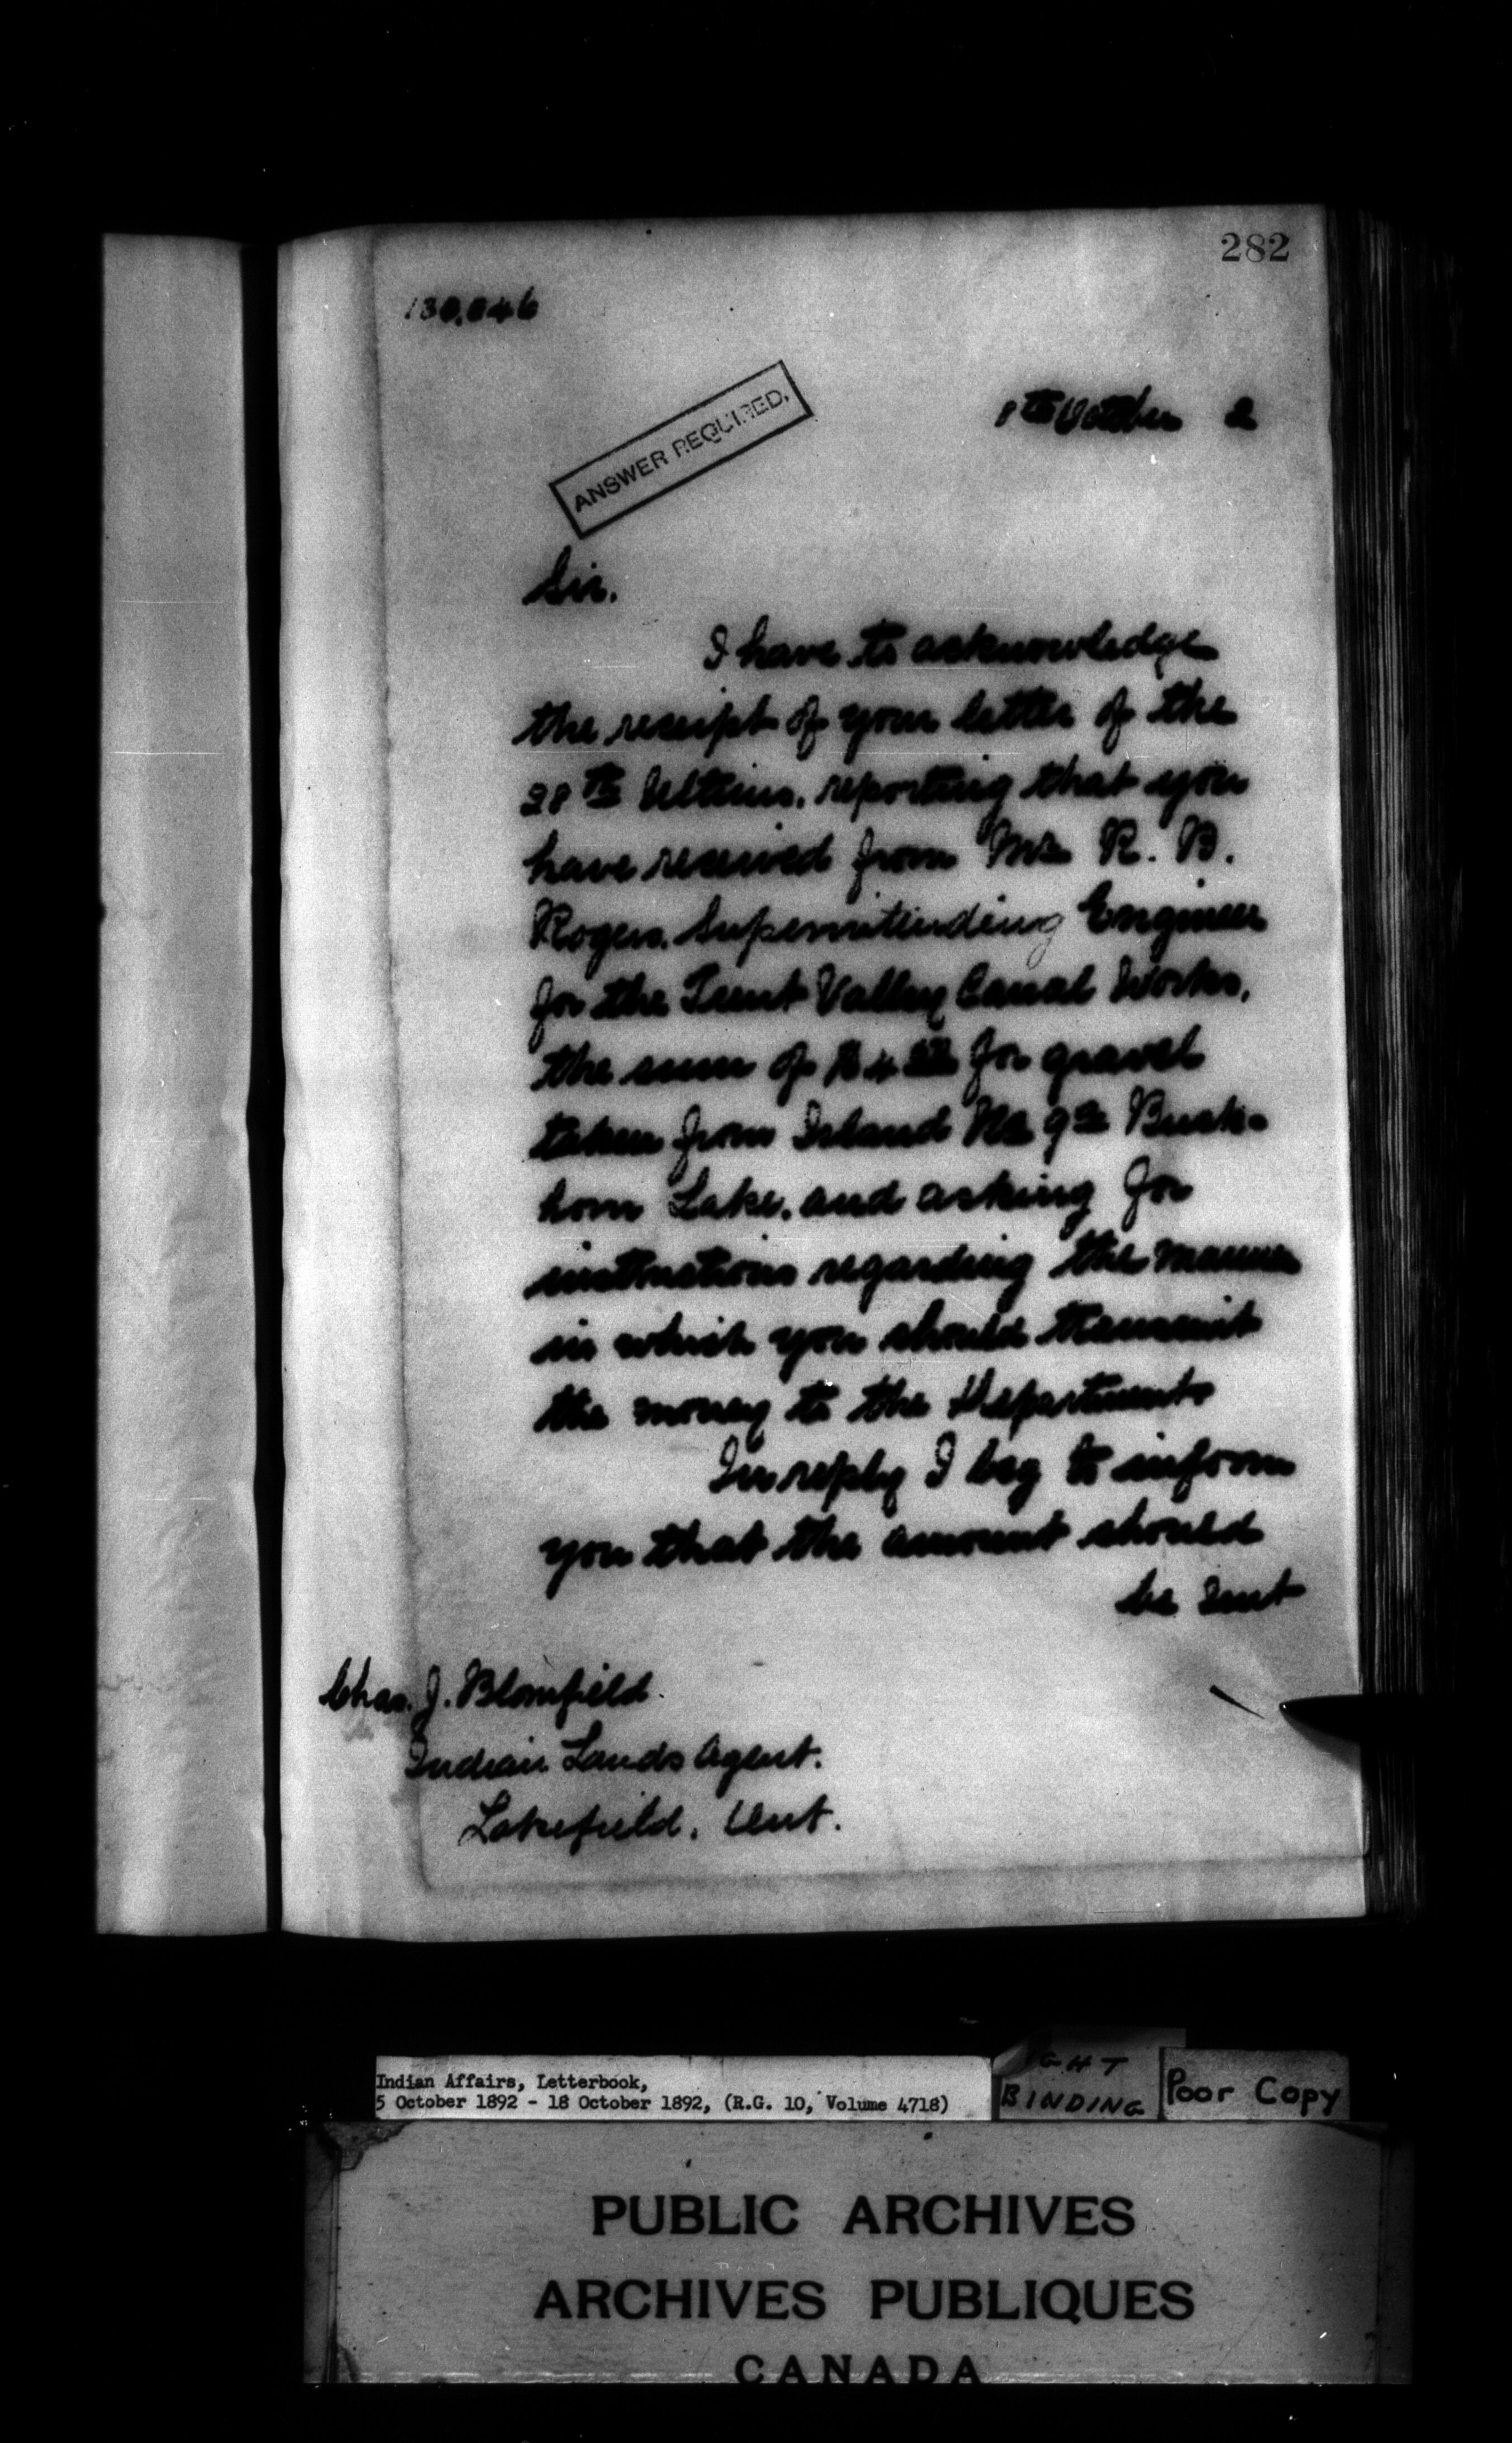 282
130,046
8th October 2
ANSWER REQUIRED.
Sir.
I have to acknowledge
the receipt of your letter of the
28th Ultimo. reporting that you
have received from Mr R. B.
Rogers. Superintending Engineer
for the Trent Valley Canal Works,
the sum of for gravel
taken from Island No 9a Buck-
horn Lake. and asking for
instructions regarding the manner
in which you should transmit
the money to the Department.
In reply I beg to inform
you that the amount should
be sent
Chas. J. Blomfield.
Indian Lands Agent.
Lakefield. Ont.
Indian Affairs, Letterbook,
5 October 1892 - 18 October 1892, (R.G. 10, Volume 4718)
BINDING
Poor Copy
PUBLIC ARCHIVES
ARCHIVES PUBLIQUES
CANADA